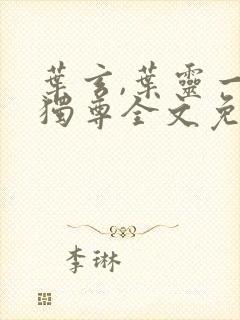 葉玄,葉靈一
獨尊全文免
李琳